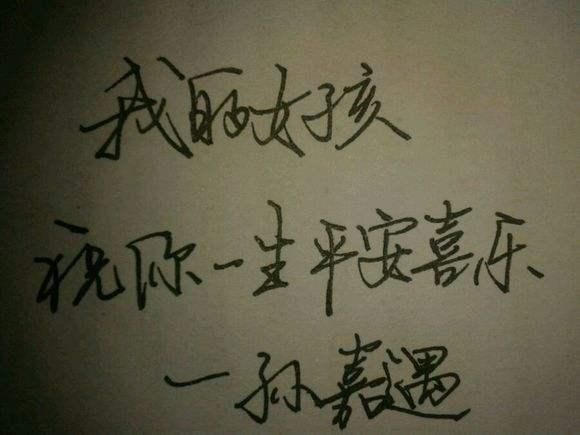 我的女孩
祝你一生平安喜乐
—孙嘉遇